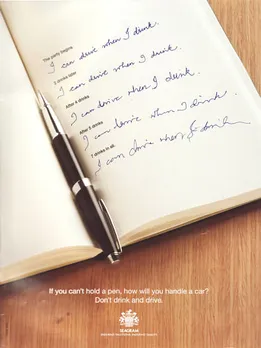 The party begins.
I can drive when I drink.
2 drinks later.
I can drive when I drink.
After 4 drinks
I can drive when I drink.
After 5 drinks
I can drive when I drink.
7 drinks in all.
I can drive when I drink
If you can't hold a pen, how will you handle a car?
Don't drink and drive.
SEAGRAM